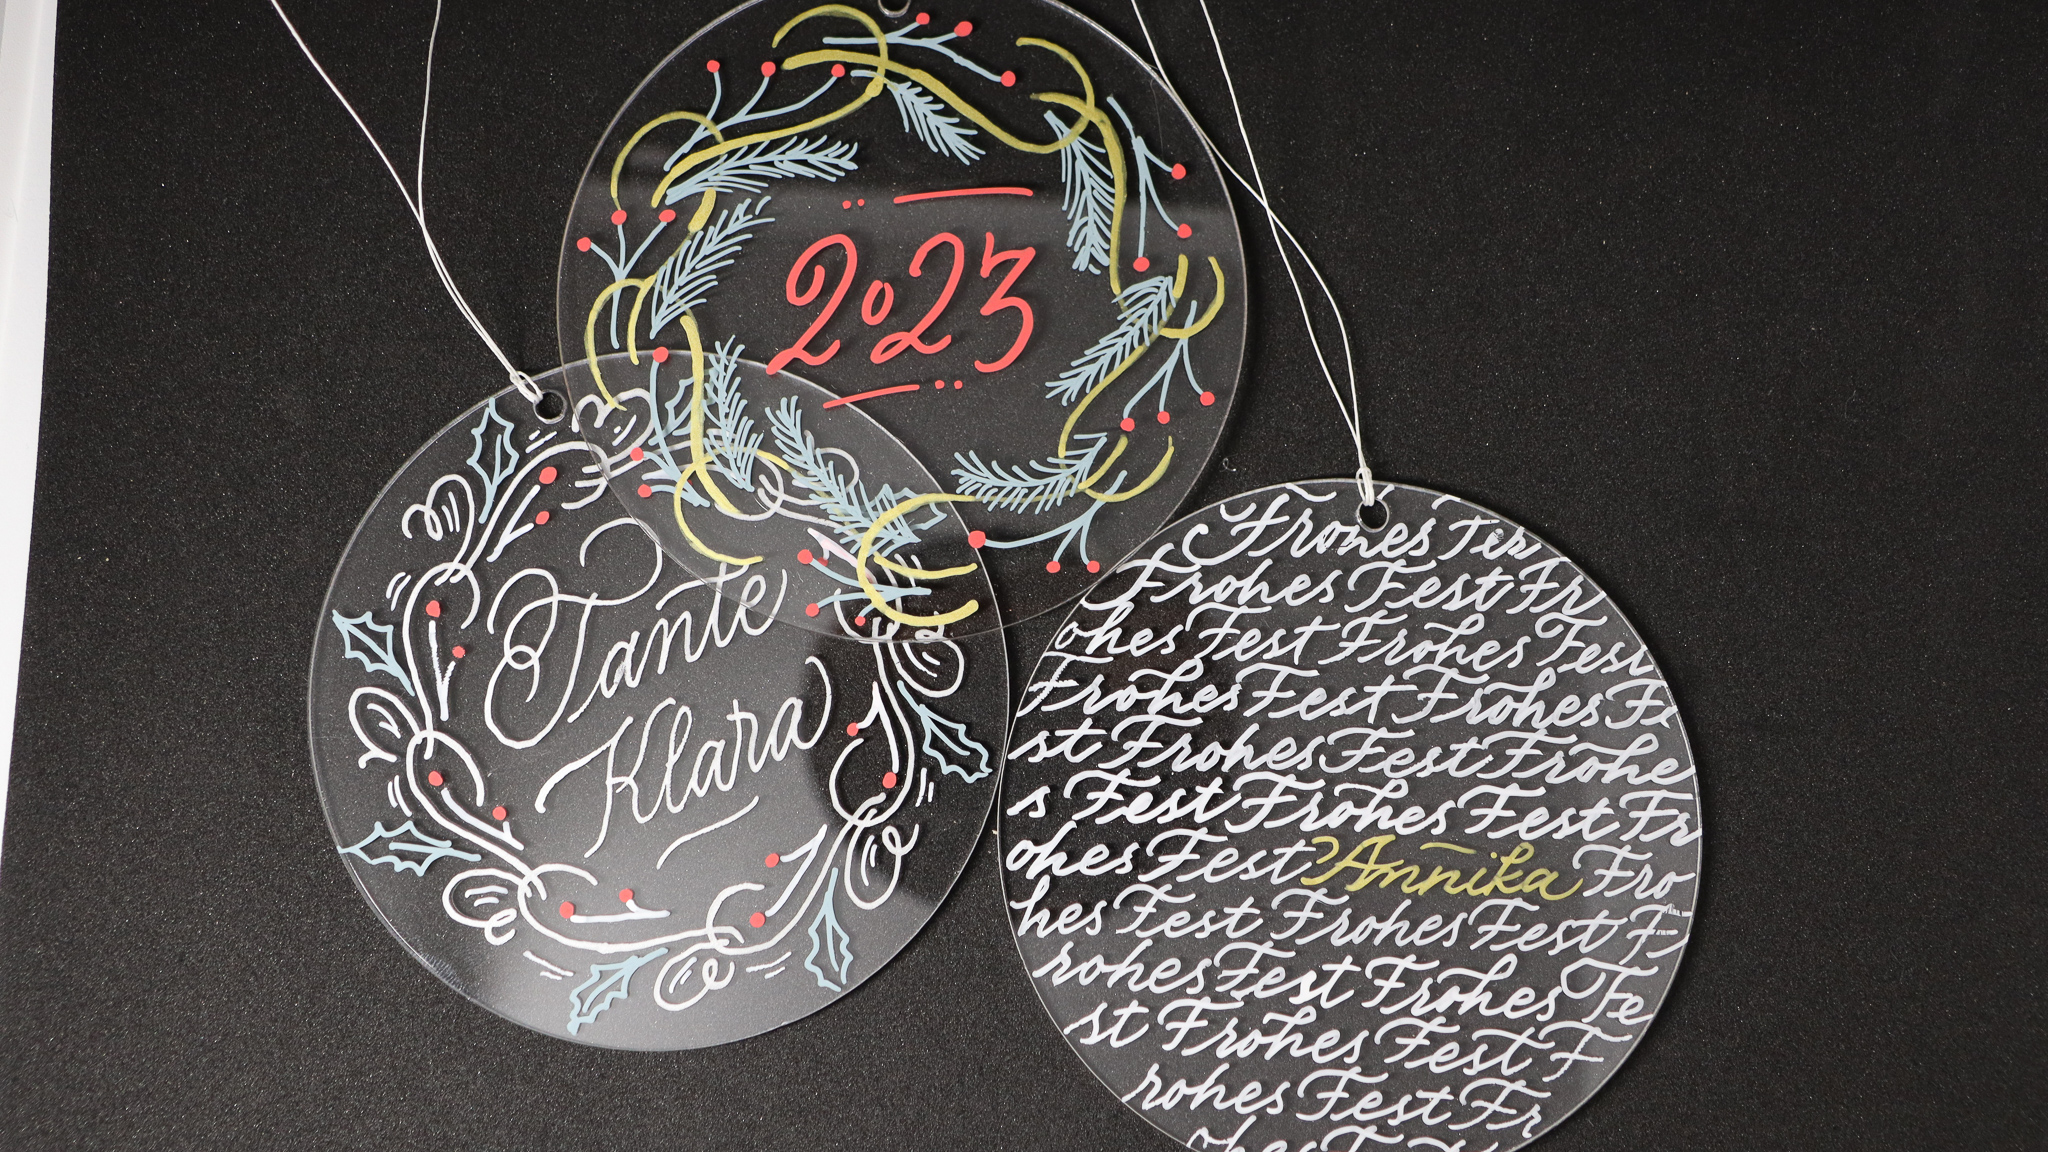 2023
Tante
Klara
Frohes Fer
Frohes Fest Fr
ohes Fest Frohes Fest
Frohes Fest Frohes Fe
st Frohes Fest Frohe
s Fest Frohes Fest Fr
ohes Fest Annika Fro
hes Fest Frohes Fest F
rohes Fest Frohes Fe
st Frohes Fest F
rohes Fest Fr
ohes Fest